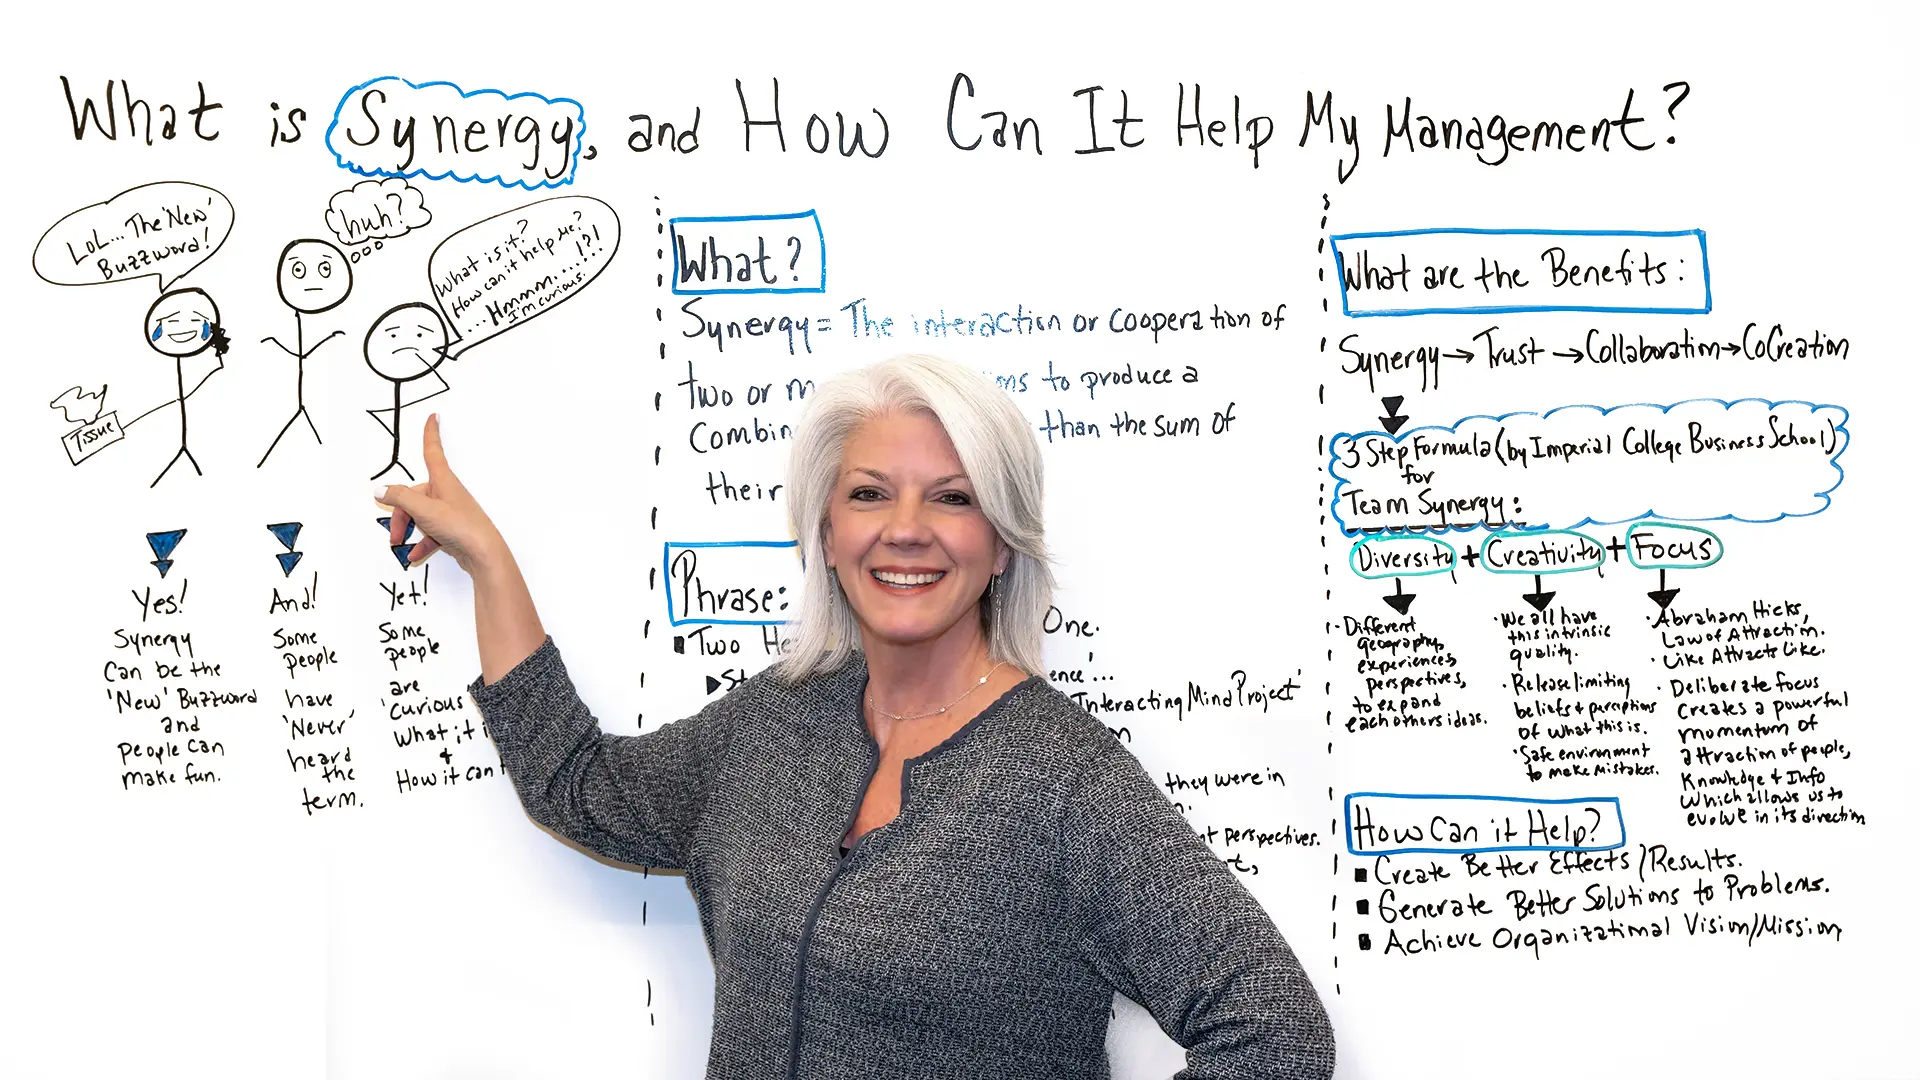 What is Synergy, and How Can It Help My Management?
LoL... The 'New'
Buzzword!
huh?
What is it?
How can it help me?
...Hmmm......!?!
I'm curious.
Tissue
Yes!
Synergy
Can be the
'New' Buzzword
and
people can
make fun.
And!
Some
people
have
'Never'
heard
the
term.
Yet!
Some
people
are
'curious
What it
&
How it can
What?
Synergy = The interaction or cooperation of
two or to produce a
than the sum of
their
Phrase:
Two One.
'Interacting Mind Project'
they were in
perspectives.
What are the Benefits:
Synergy → Trust → Collaboration → CoCreation
3 Step Formula (by Imperial College Business School)
for
Team Synergy:
Diversity + Creativity + Focus
• Different
geography,
experiences,
perspectives,
to expand
each others ideas.
• We all have
this intrinsic
quality.
• Release limiting
beliefs & perceptions
of what this is.
• Safe environment
to make mistakes.
• Abraham Hicks,
Law of Attraction.
• Like Attracts Like.
• Deliberate focus
creates a powerful
momentum of
attraction of people,
Knowledge & Info
Which allows us to
evolve in its direction
How Can it Help?
■ Create Better Effects/Results.
■ Generate Better Solutions to Problems.
■ Achieve Organizational Vision/Mission